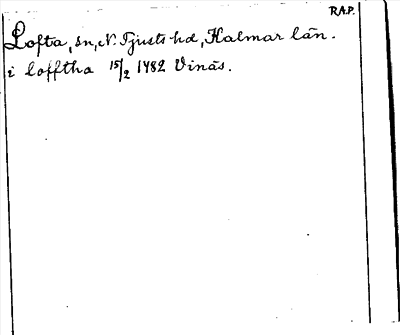 R.A.P.
Lofta, sn, N. Tjusts hd, Kalmar län.
i lofftha 15/2 1482 Vinäs.